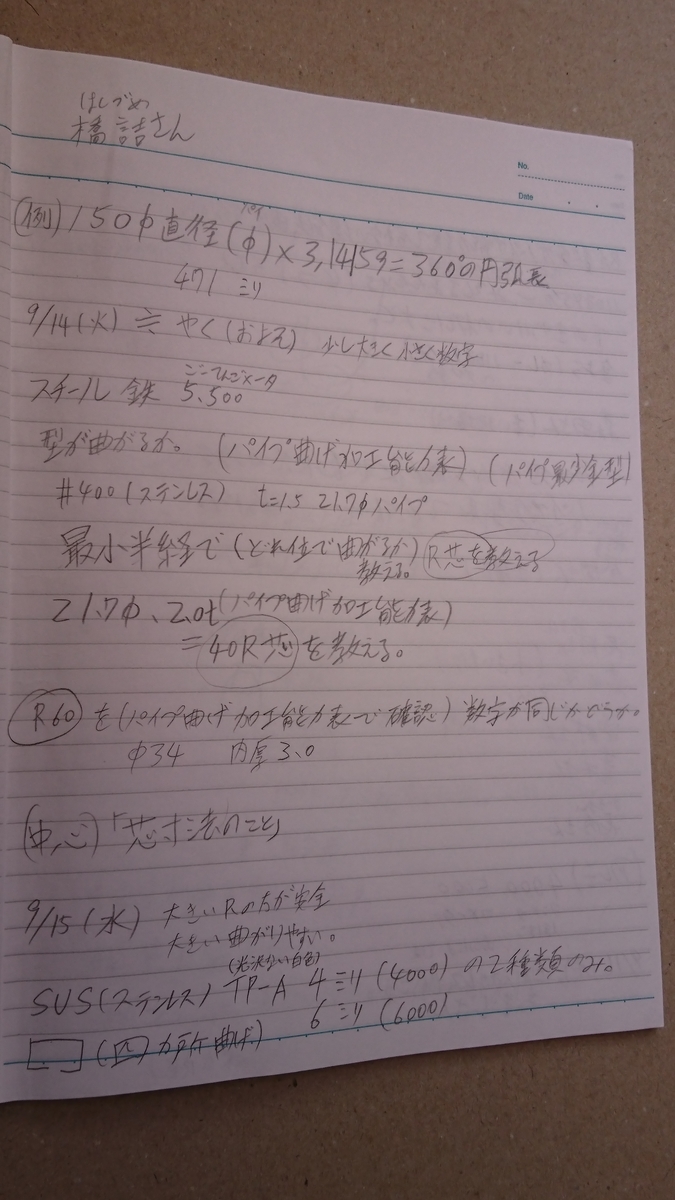 はしづめ
橋詰さん
No.
Date
パイ
(例) 150φ直径(φ)×3,14159=360°の円弧長
471 ミリ
9/14(火) ≒ やく(およそ) 少し大きく小さく数字
スチール 鉄 5,500
型が曲がるか。(パイプ曲げ加工能力表)(パイプ最少金型)
#400(ステンレス) t=1.5 21.7φパイプ
最小半経で(どれ位で曲がるか)R芯を教える
教える。
21.7φ、2.0t(パイプ曲げ加工能力表)
=40R芯を教える。
R60を(パイプ曲げ加工能力表で確認)数字が同じかどうか。
φ34 内厚3.0
(中心)「芯寸法のこと」
9/15(水) 大きいRの方が安全
大きい曲がりやすい。
(光沢ない白色)
SUS(ステンレス) TP-A 4ミリ(4000)の2種類のみ。
6ミリ(6000)
(四)カ所曲げ)